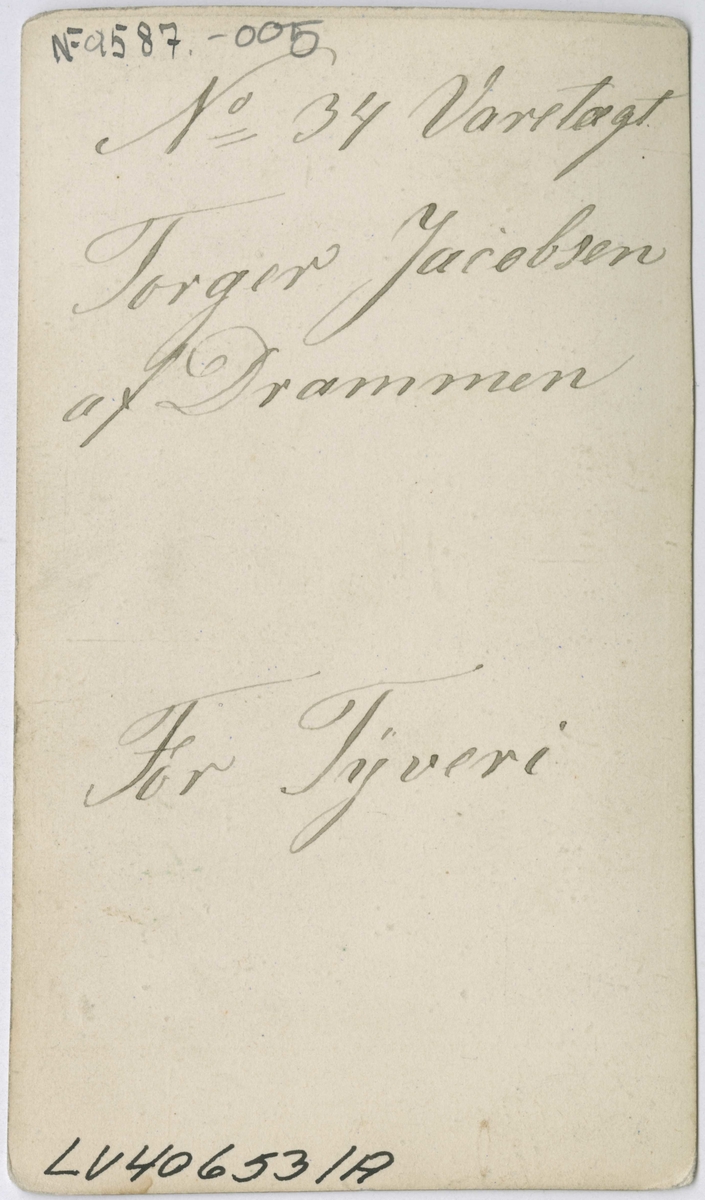 Nº 9587.-005
Nº 34 Varetægt
Torger Jacobsen
af Drammen
For Tÿveri
LV406531A